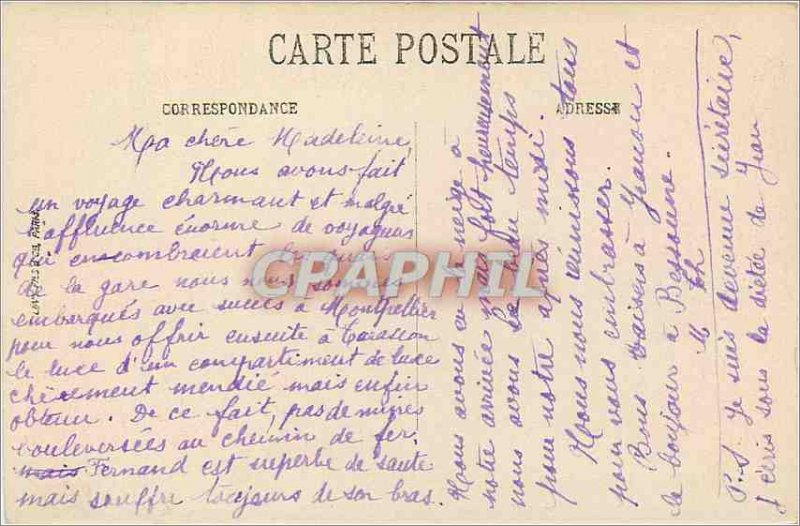 CARTE POSTALE
CORRESPONDANCE
ADRESSE
Ma chère Madeleine,
Nous avons fait
un voyage charmant et malgré
l'affluence énorme de voyageurs
qui encombraient les
de la gare nous nous sommes
embarqués avec succès à Montpellier
pour nous offrir ensuite à Tarascon
le luxe d'un compartiment de luxe
chèrement mendié mais enfin
obtenu. De ce fait, pas de mines
bouleversées au chemin de fer.
mais Fernand est superbe de santé
mais souffre toujours de son bras.
Nous avons eu la neige à
notre arrivée mais fort heureusement
nous avons le beau temps
pour notre après midi.
Nous nous réunissons tous
pour vous embrasser.
Bons baisers à et
le bonjour à Bessonne.
M Th
P.S. Je suis devenue secrétaire,
j'écris sous la dictée de Jean
CPARPHIL